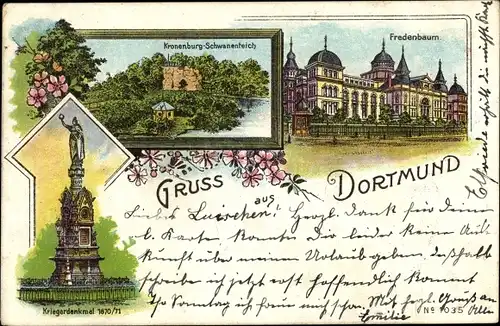 Kronenburg-Schwanenteich
Fredenbaum
GRUSS aus DORTMUND
Kriegerdenkmal 1870/71
Liebes Luischen! Herzl. Dank für deine
l. Karte, konnte Dir leider keine Aus
kunft über meinen Urlaub geben, deshalb
schreibe ich jetzt erst hoffentlich kommt
Ihr Sonntag ich freu mich schon. Mit herzl. Gruß an Alle
Emilie
No 1035
Elfriede erhielt ihre